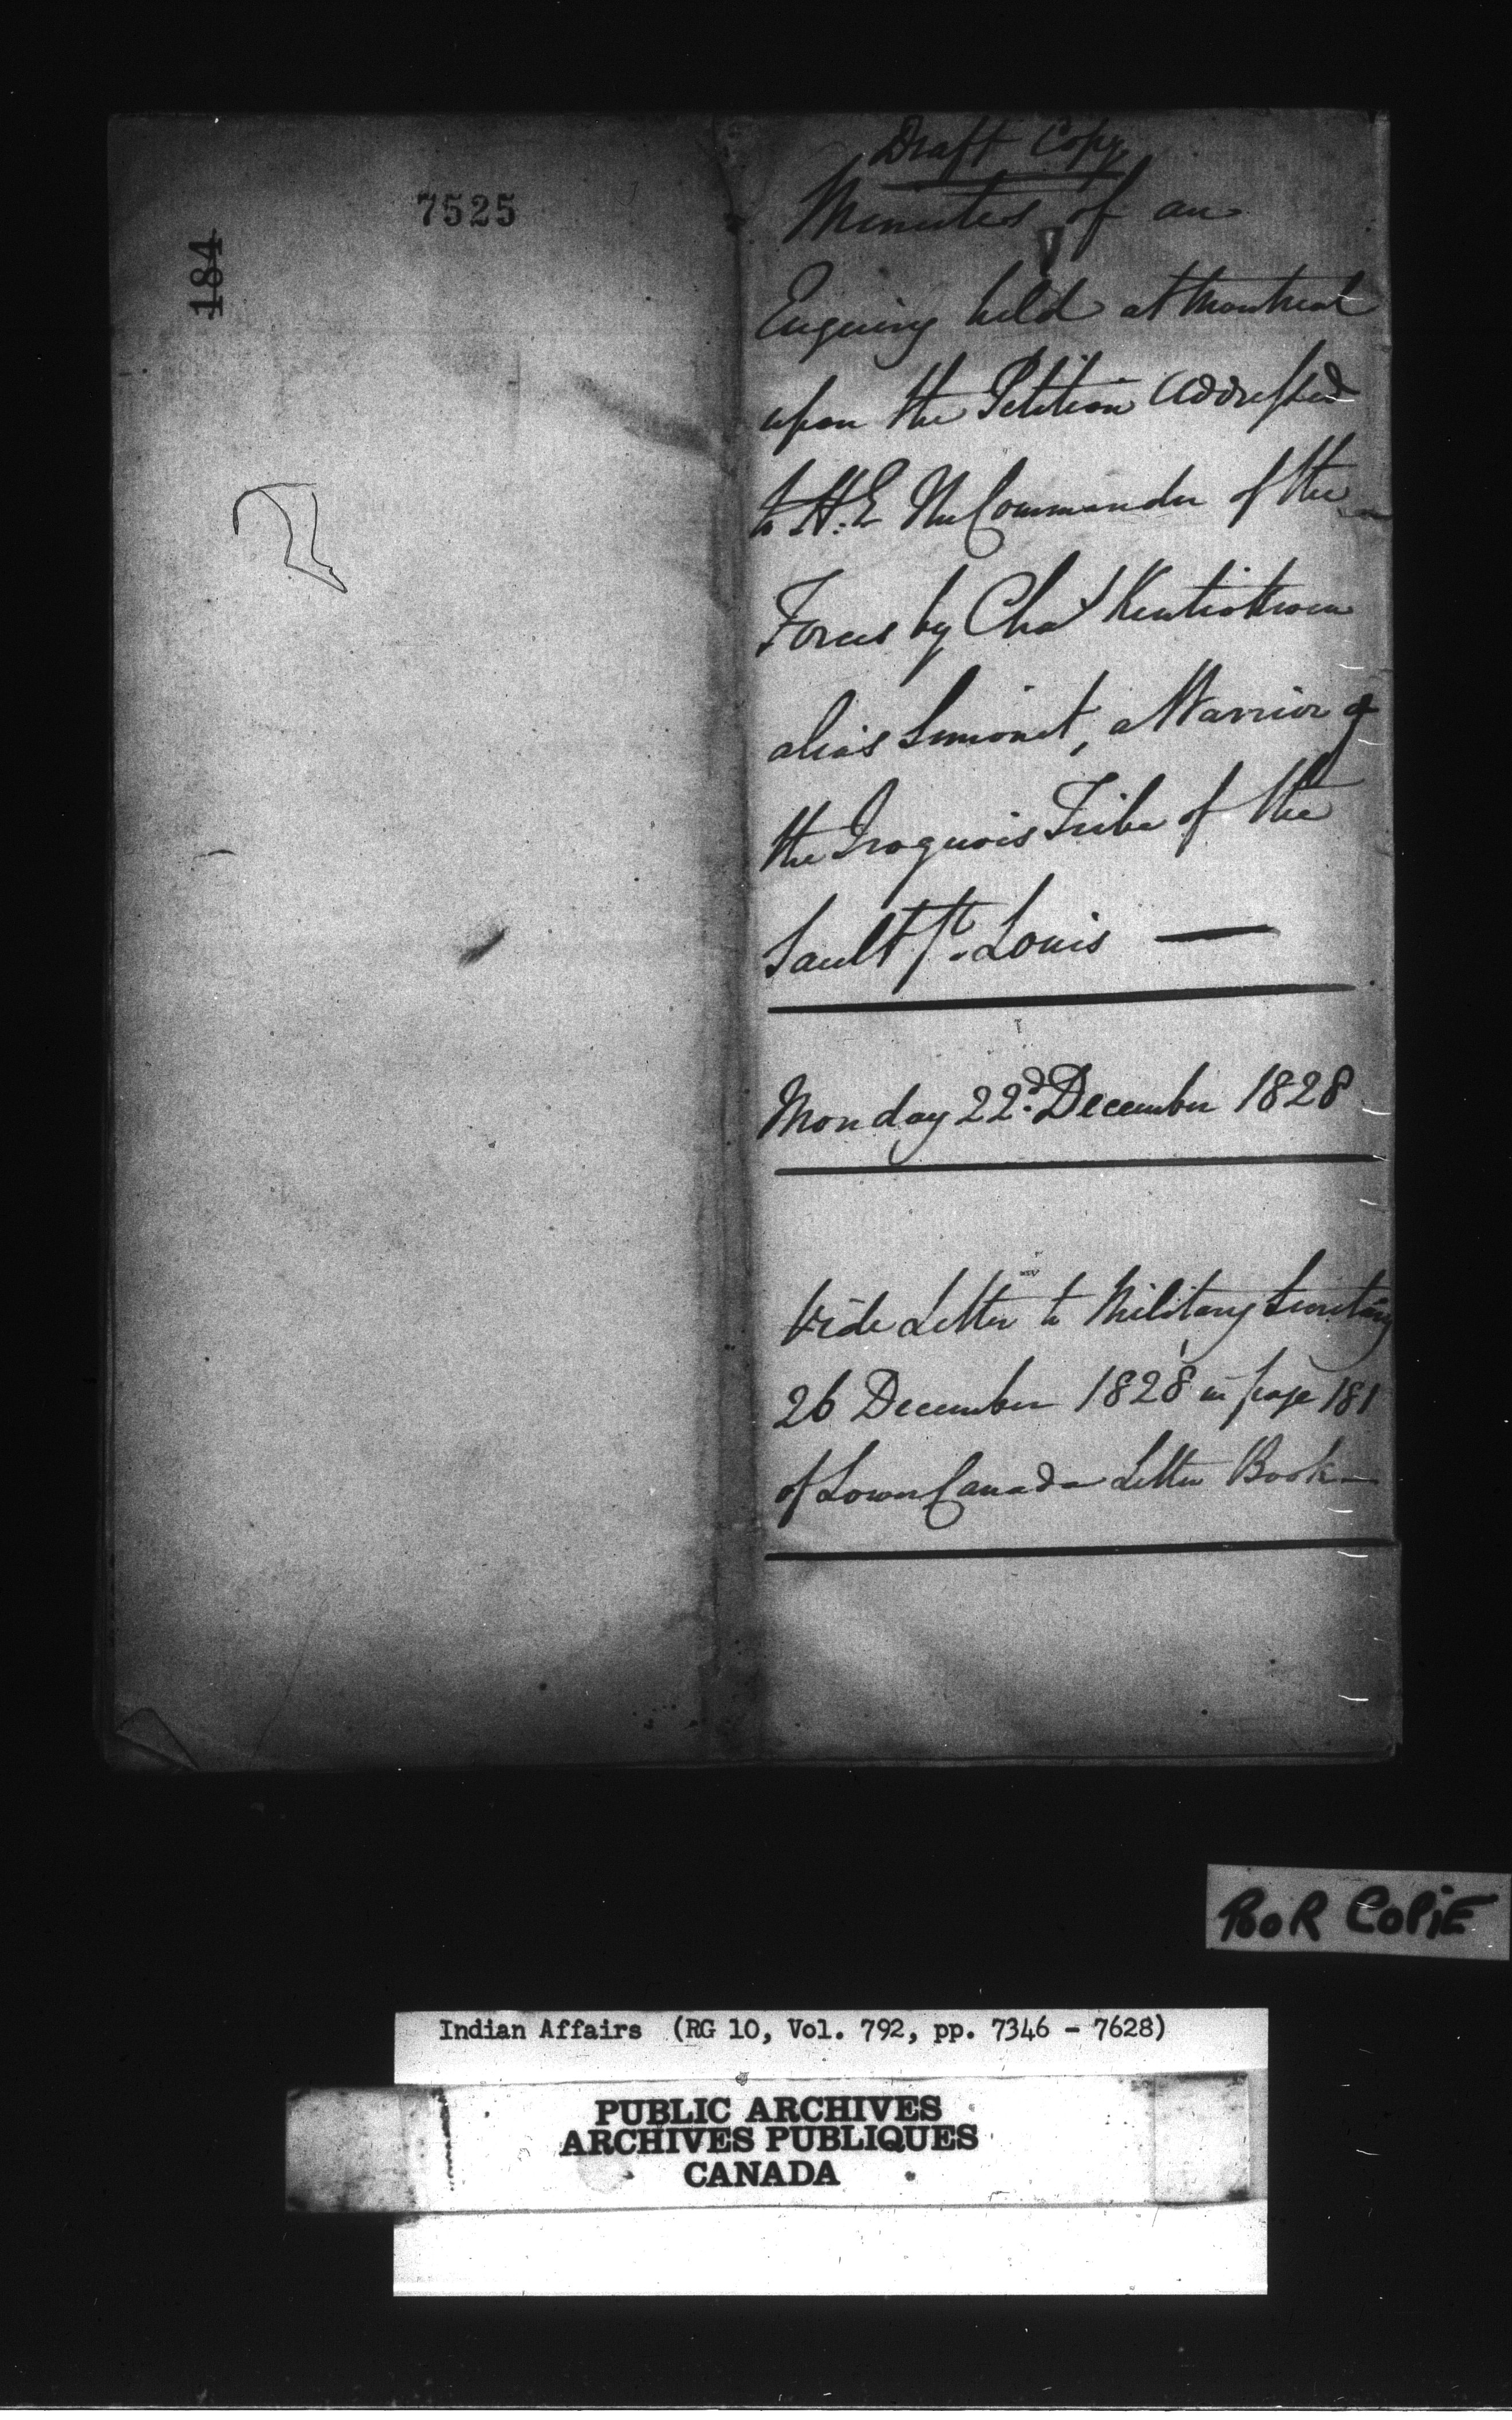 7525
184
Draft Copy
Minutes of an
Enquiry held at Montreal
upon the Petition Addressed
to H.E. The Commander of the
Forces by Chas
alias Simonet, a Warrior of
the Iroquois Tribe of the
Sault St. Louis —
Monday 22d. December 1828
Vide Letter to Military Secretary
26 December 1828 in page 181
of Lower Canada Letter Book —
POOR COPIE
Indian Affairs (RG 10, Vol. 792, pp. 7346 - 7628)
PUBLIC ARCHIVES
ARCHIVES PUBLIQUES
CANADA